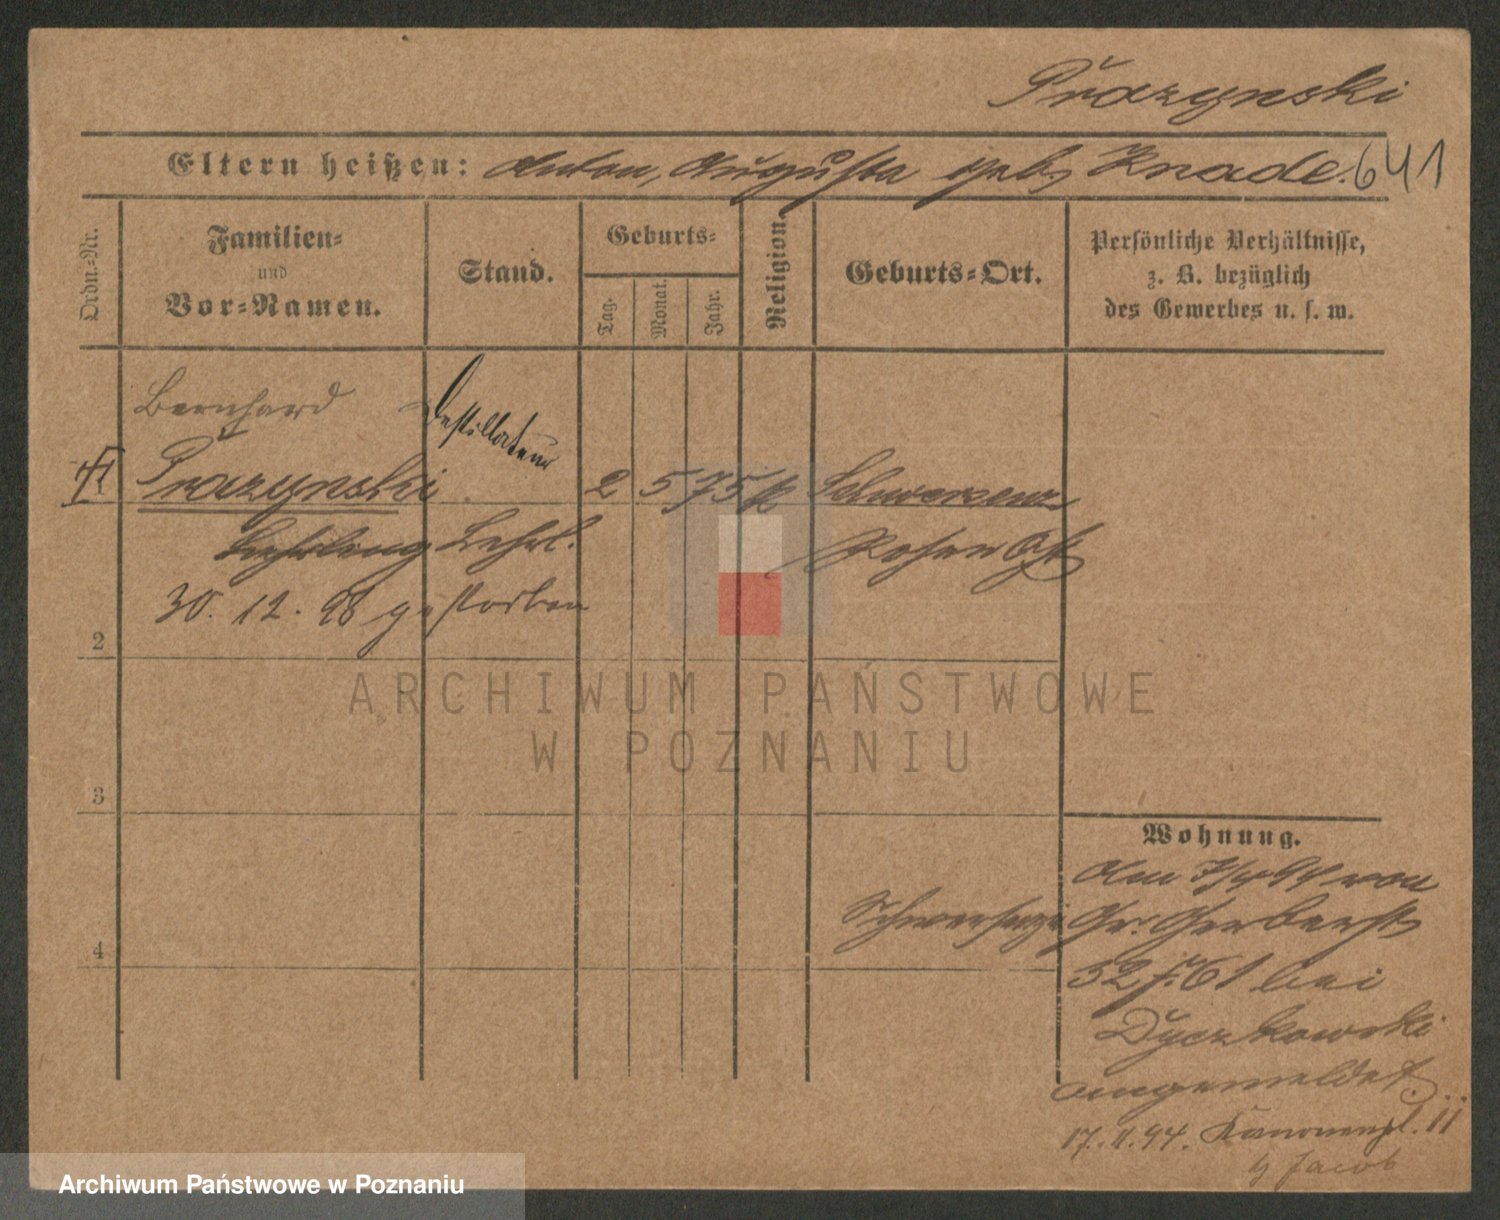 Prazynski
Eltern heißen: Anton, Augusta geb. Knade. 641
Ordn.-Nr.
Familien-
und
Vor-Namen.
Stand.
Geburts-
Tag.
Monat.
Jahr.
Religion.
Geburts-Ort.
Persönliche Verhältnisse,
z. B. bezüglich
des Gewerbes u. s. w.
Bernhard
Destillateur
Prazynski 2 5 75 k Schwersenz
Lehrling Lehrl. Posen Ost
30. 12. 98 gestorben
2
3
4
ARCHIWUM PAŃSTWOWE
W POZNANIU
Wohnung.
Am 7/4 94 von
Schwersenz Gr. Gerberst
52 f. 61 bei
Dyczkowski
angemeldet.
17. 11. 94. Kanonenpl. 11
b Jacob
Archiwum Państwowe w Poznaniu